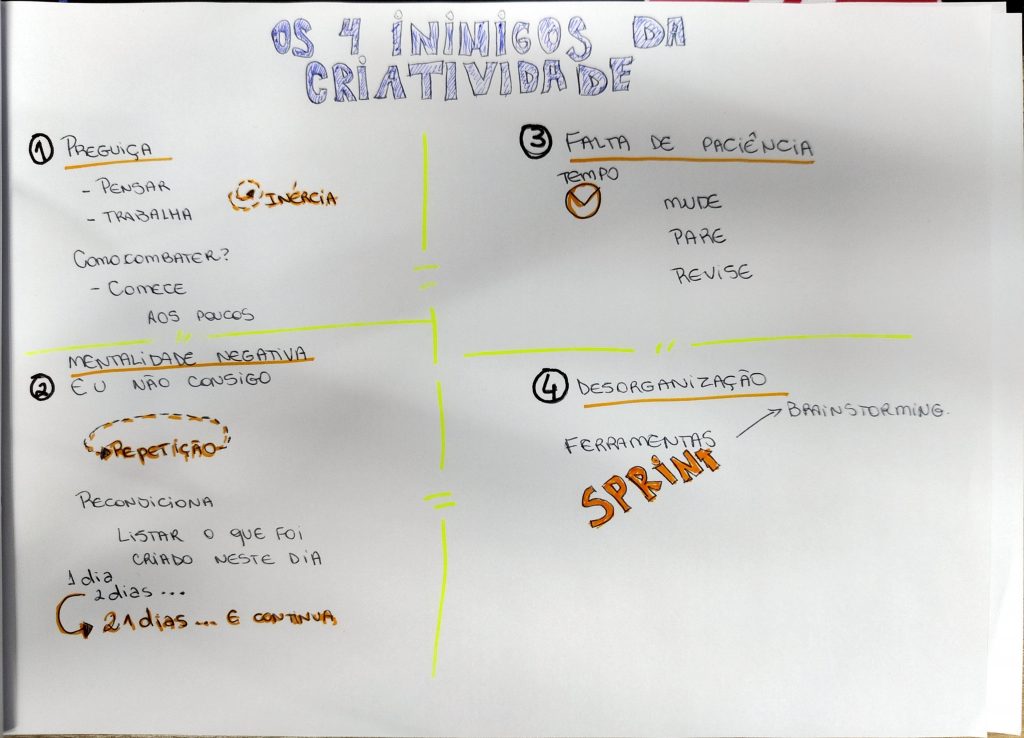 OS 4 INIMIGOS DA
CRIATIVIDADE
1 PREGUIÇA
- PENSAR
- TRABALHA
INÉRCIA
COMO COMBATER?
- COMECE
AOS POUCOS
MENTALIDADE NEGATIVA
2 EU NÃO CONSIGO
REPETIÇÃO
RECONDICIONA
LISTAR O QUE FOI
CRIADO NESTE DIA
1 dia
2 dias ...
21 dias ... E CONTINUA
3 FALTA DE PACIÊNCIA
TEMPO
MUDE
PARE
REVISE
4 DESORGANIZAÇÃO
BRAINSTORMING.
FERRAMENTAS
SPRINT